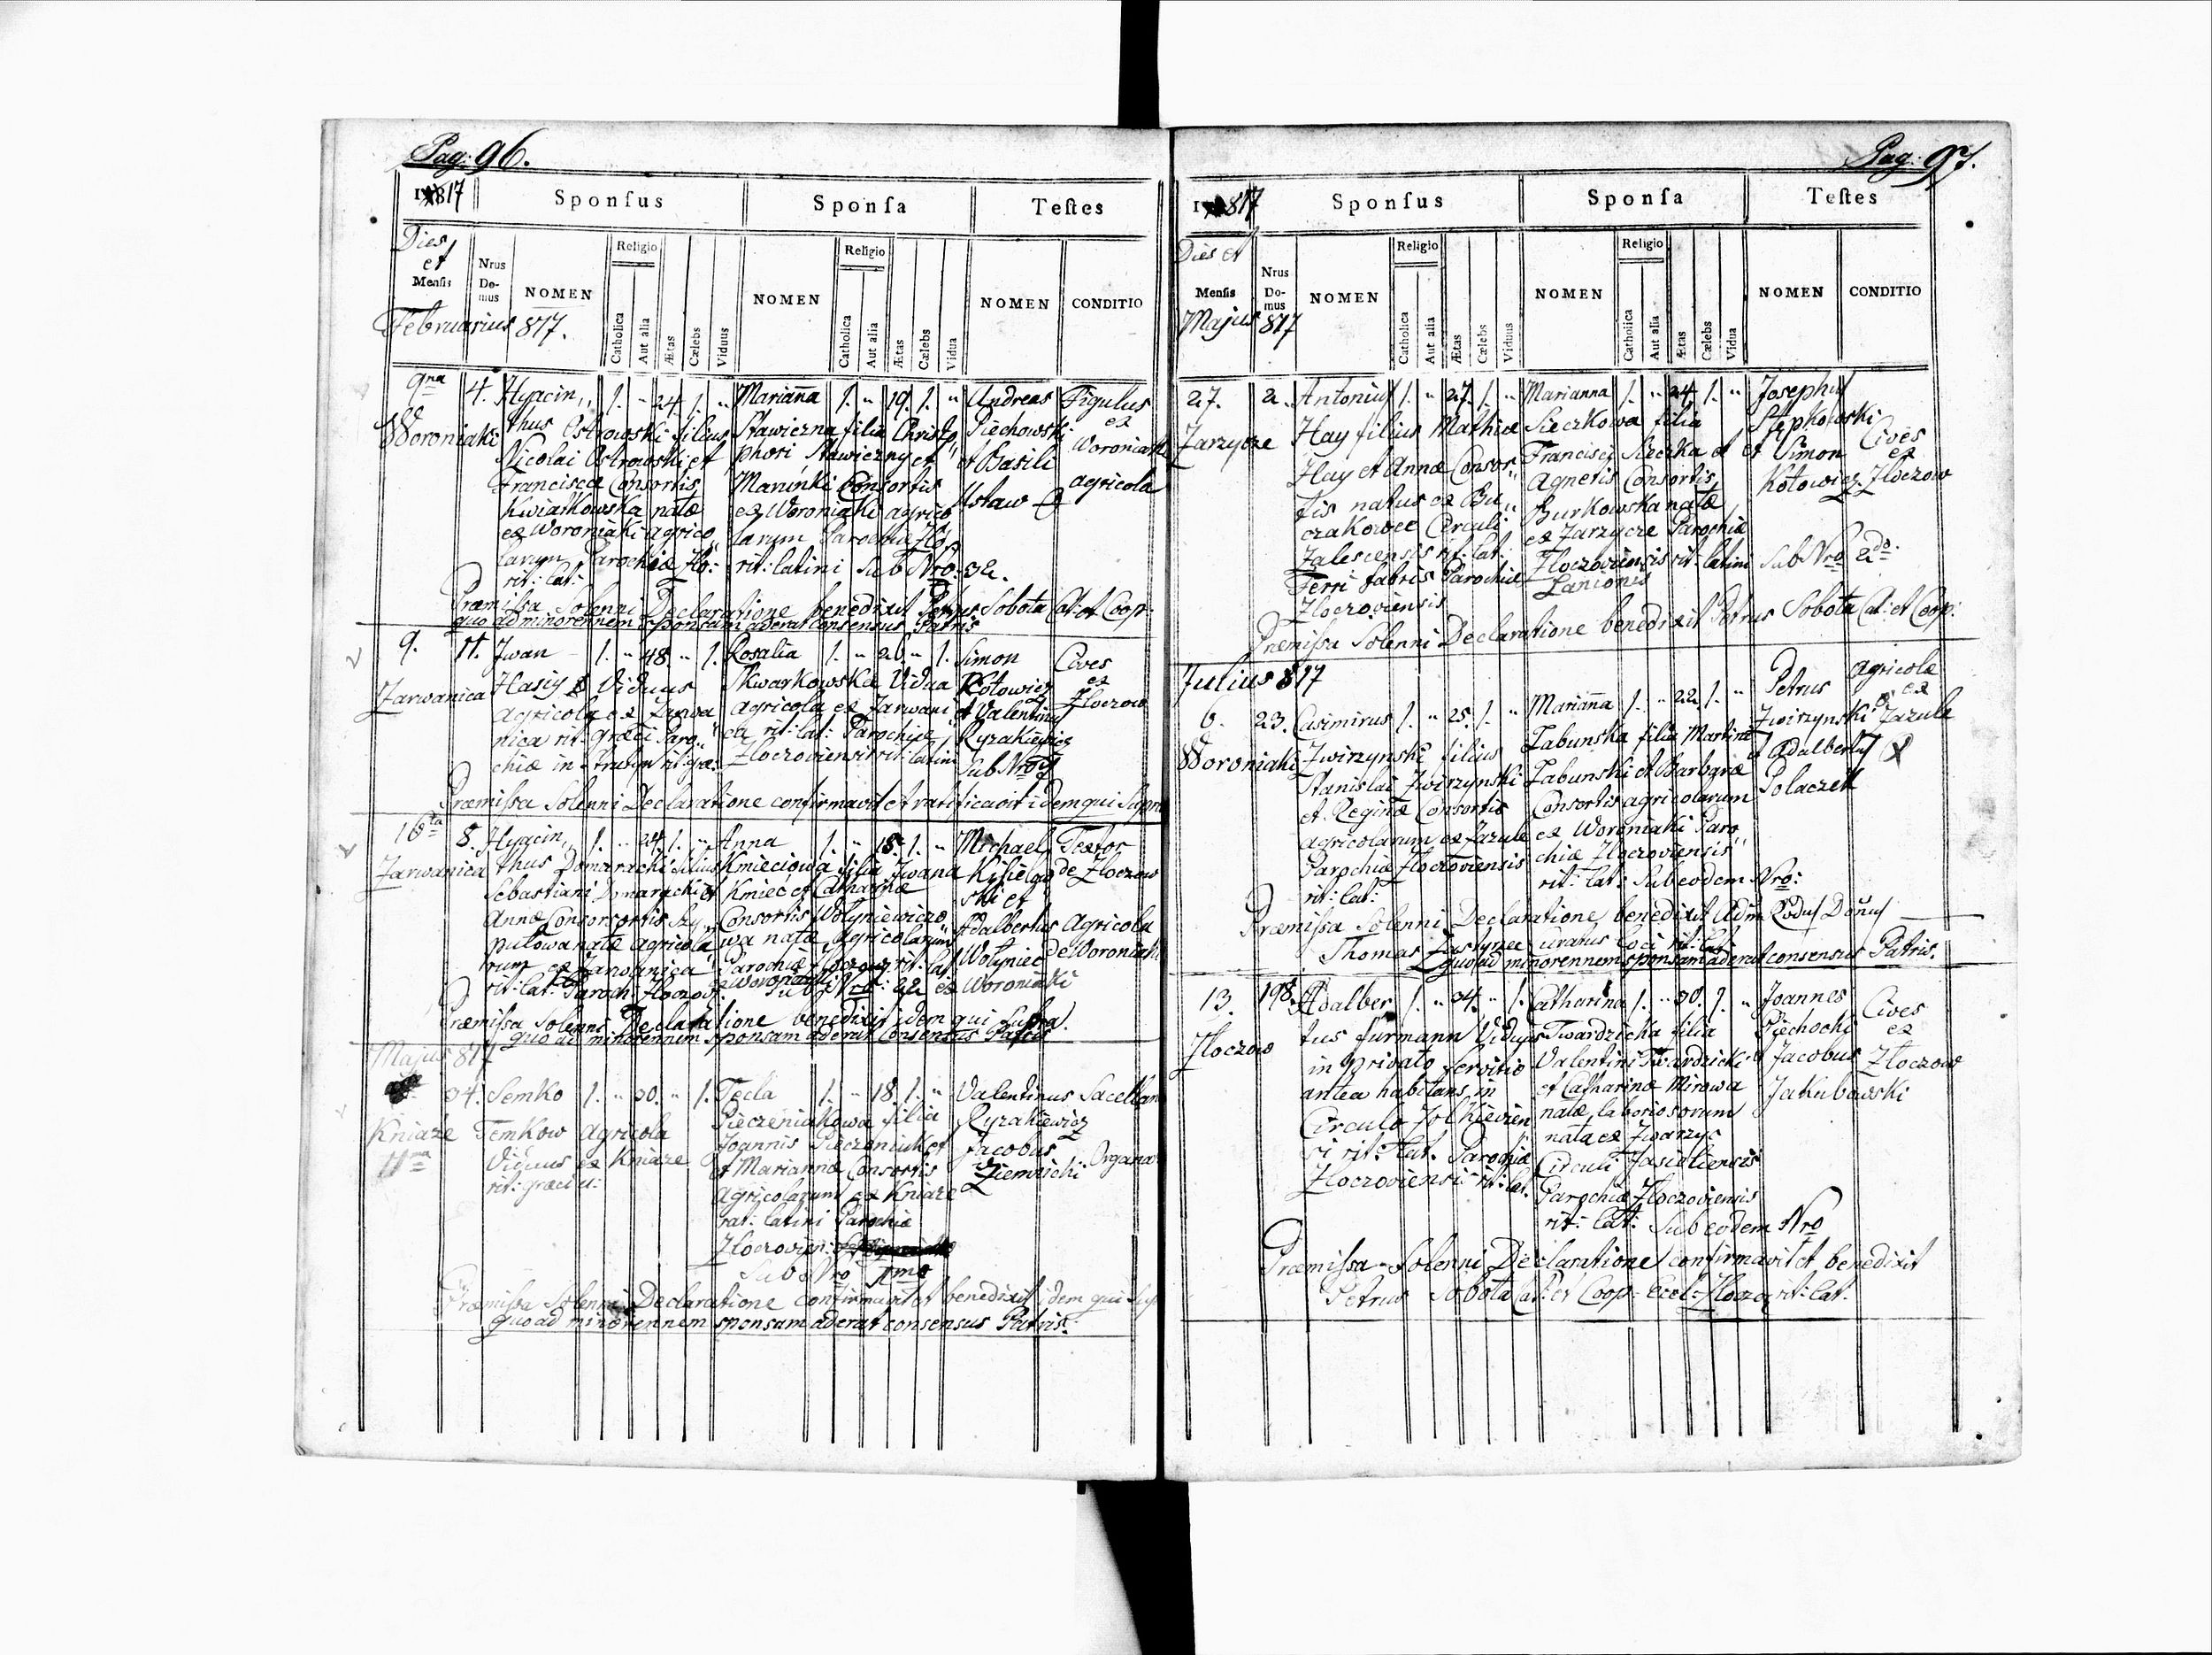 Pag: 96.
1817
Sponsus
Sponsa
Testes
Dies et Mensis
Nrus Domus
NOMEN
Religio
Catholica
Aut alia
Ætas
Cælebs
Viduus
NOMEN
Religio
Catholica
Aut alia
Ætas
Cælebs
Vidua
NOMEN
CONDITIO
Februarius 817.
9na
Woroniaki
4.
Hyacin,,
thus Ostrowski filius
Nicolai Ostrowski et
Franciscæ Consortis
Kwiatkowska natæ
ex Woroniaki agrico
larum Parochiæ Zło:
rit: lat:
1. " 24. 1. "
Marianna
Stawiczna filia Christo
phori Stawiczny et
Marunki Consortis
ex Woroniaki agrico
larum Parochiæ Zło
rit: latini Sub Nro: 32.
1. " 19. 1. "
Andreas
Piechowski
et Basili
Usław
Figulus
ex
Woroniaki
agricola
Præmissa Solenni Declaratione benedixit Petrus Sobota Cat: et Coop:
quo ad minorennem sponsam aderat consensus Patris
9.
Zarwanica
11.
Jwan
Hasiy Viduus
agricola ex Zarwa
nica rit: græci Paro,,
chiæ in rit: græ:
1. " 48. " 1.
Rosalia
Skwarkowska Vidua
agricola ex Zarwani
ca rit: lat: Parochiæ
Złoczoviensis rit: latini
1. " 26. " 1.
Simon
Kotowicz
et Valentinus
Ryzakiewicz
Sub Nro
Cives
ex
Złoczow
Præmissa Solenni Declaratione confirmavit et ratificavit idem qui Supra
16ta
Zarwanica
8.
Hyacin,,
thus Domaracki filius
Sebastiani Domaracki et
Annæ Consorsortis Szy,,
putowa natæ agricola,,
rum ex Zarwanica
rit: lat: Paroch: Złoczow:
1. " 24. 1. "
Anna
Kmieciowa filia Jwana
Kmieć et Catharinæ
Consortis Wołyniewiczo
wa natæ agricolarum
Parochiæ rit: lat:
Sub Nro: 22 ex Woroniaki
1. " 18. 1. "
Michael
ski et
Adalbertus
Wołyniec
Textor
de Złoczow
Agricola
de Woroniaki
Præmissa Solenni Declaratione benedixit idem qui Supra.
quo ad minorennem sponsam aderat Consensus Patris
Majus 817
Kniaże
11ma
34.
Semko
Temkow agricola
Viduus ex Kniaże
rit: græci
1. " 30. " 1.
Tecla
Pieczeniakowa filia
Joannis Pieczeniuk et
et Mariannæ Consortis
agricolarum ex Kniaże
rit: latini Parochiæ
Złoczovien:
Sub Nro 1mo
1. " 18. 1. "
Valentinus
Ryzakiewicz
Jacobus
Ziembicki
Sacellan
Organa
Præmissa Solenni Declaratione confirmavit et benedixit idem qui Sup
quo ad minorennem sponsam aderat consensus Patris.
Pag: 97.
1817
Sponsus
Sponsa
Testes
Dies et
Mensis
Nrus Domus
NOMEN
Religio
Catholica
Aut alia
Ætas
Cælebs
Viduus
NOMEN
Religio
Catholica
Aut alia
Ætas
Cælebs
Vidua
NOMEN
CONDITIO
Majus 817
27.
Zarzycze
2.
Antonius
Hay filius Mathiæ
Hay et Annæ Consor,,
tis natus ex Bu,,
czakowce Circuli
Zalescensis rit: lat:
Ferri fabris Parochiæ
Złoczoviensis
1. " 27. 1. "
Marianna
Sieczkowa filia
Francisci Sieczka et
Agnetis Consortis,
Burkowska natæ
ex Zarzycze Parochiæ
Złoczoviensis rit: latini
Lanionis
1. " 24. 1. "
Josephus
et Simon
Kotowicz
Cives
ex
Złoczow
Sub Nro 2do.
Præmissa Solenni Declaratione benedixit Petrus Sobota Cat: et Coop:
Julius 817
6.
Woroniaki
23.
Casimirus
Zwirzynski filius
Stanislai Zwirzynski
et Reginæ Consortis
agricolarum ex Zazule
Parochiæ Złoczoviensis
rit: lat:
1. " 25. 1. "
Marianna
Łabunska filia Martini
Łabunski et Barbaræ
Consortis agricolarum
ex Woroniaki Paro,,
chiæ Złoczoviensis
rit: lat: Sub eodem Nro:
1. " 22. 1. "
Petrus
Zwirzynski
et Adalbertus
Polaczek
agricolæ
ex
Zazule
Præmissa Solenni Declaratione benedixit Adm Rdus Dnus
Thomas Curatus loci rit: lat:
quo ad minorennem sponsam aderat consensus Patris.
13.
Złoczow
198.
Adalber
tus furmann Viduus
in privato servitio
antea habitans in
Circulo Zołkievien
si rit: lat. Parochiæ
Złoczoviensi rit: lat.
1. " 34. " 1.
Catharina
Twardzicka filia
Valentini Twardzicki
et Catharinæ Mirowa
natæ, laboriosorum
nata ex Zwarzyc
Circuli Jasieliensis
Parochiæ Złoczoviensis
rit: lat: Sub eodem Nro
1. " 30. 1. "
Joannes
Piechocki
et Jacobus
Jakubowski
Cives
ex
Złoczow
Præmissa Solenni Declaratione confirmavit et benedixit
Petrus Sobota Cat: et Coop: Eccl: Złoczo: rit: lat.